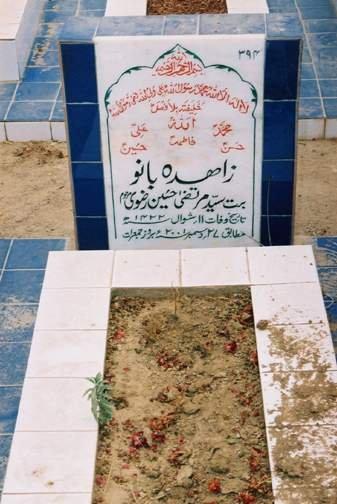 ۳۹۴
بسم اللہ الرحمن الرحیم
لا الہ الا اللہ محمد رسول اللہ علی ولی اللہ وصی رسول اللہ
خلیفتہ بلا فصل
محمدؐ اللہ علیؑ
حسنؑ فاطمہؑ حسینؑ
زاھدہ بانو
بنت سید مرتضیٰ حسین رضوی مرحوم
تاریخ وفات ۱۱ شوال ۱۴۲۲ھ
مطابق ۲۷ دسمبر ۲۰۰۱ء بروز جمعرات